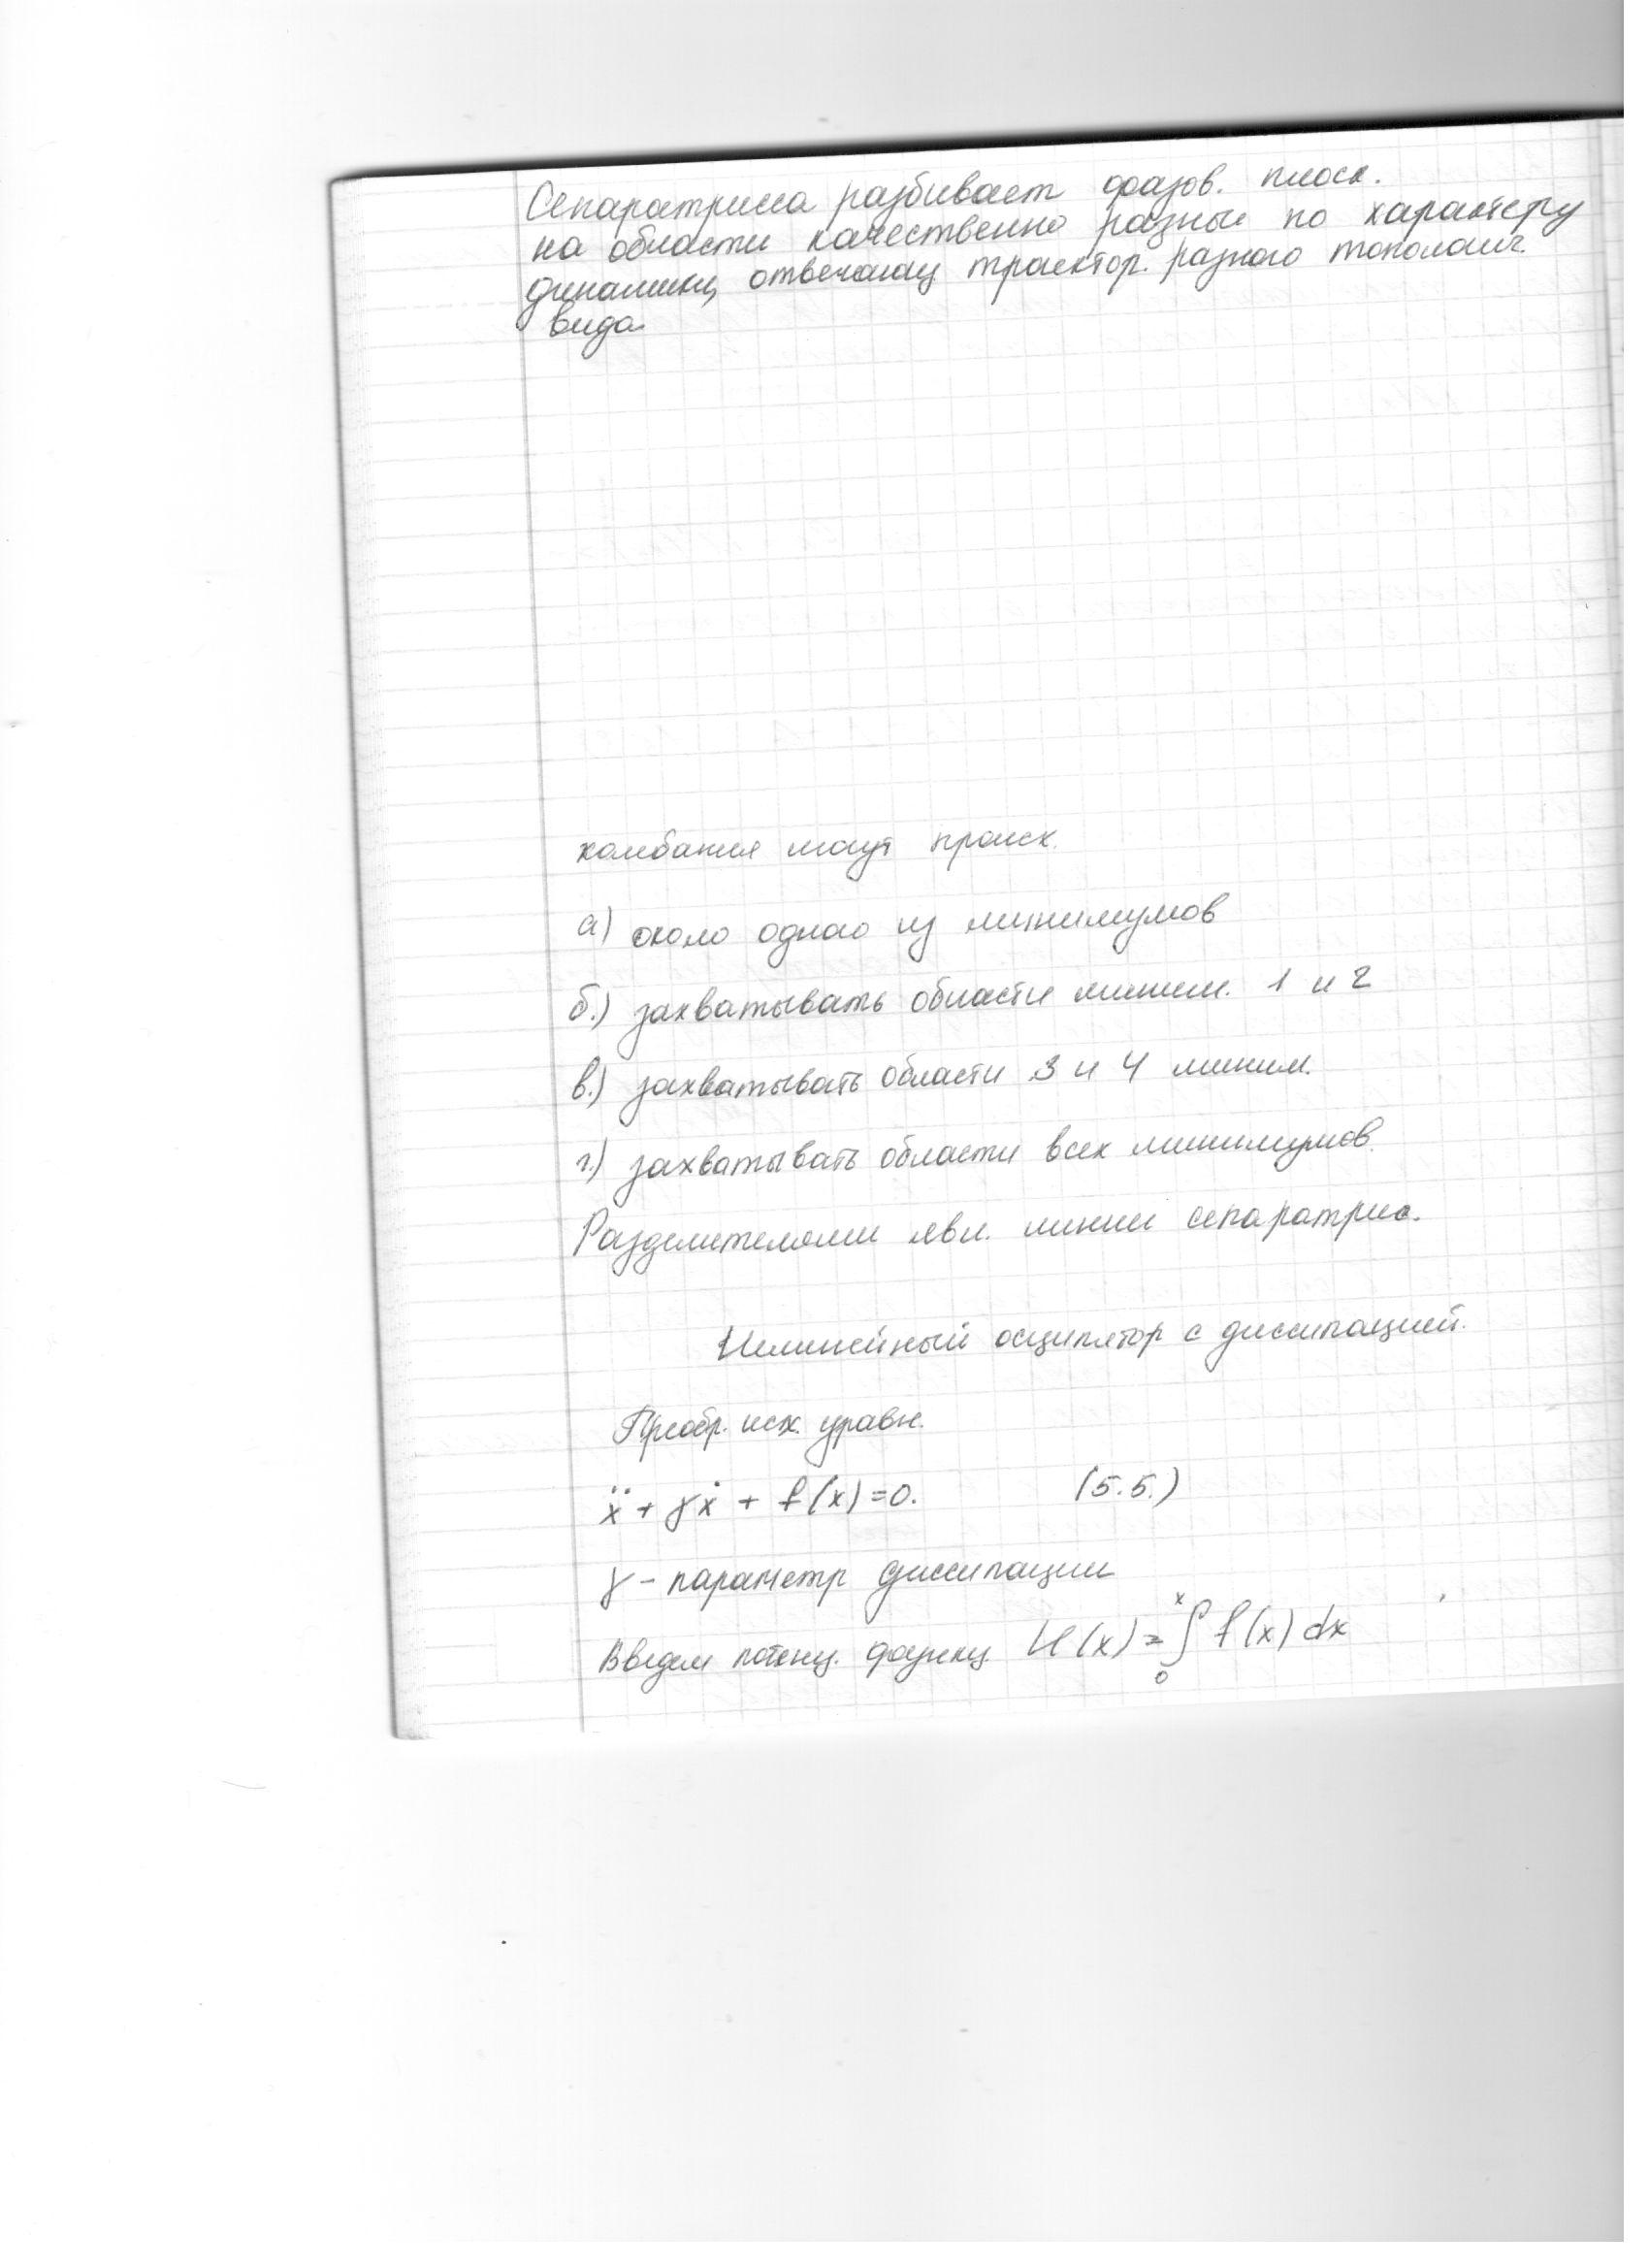 Сепаратрисса разбивает фазов. плоск.
на области качественно разные по характеру
динамики, отвечающ траектор. разного топологич.
вида
колебания могут происх.
а) около одного из минимумов
б.) захватывать области миним. 1 и 2
в.) захватывать области 3 и 4 миним.
г.) захватывать области всех минимумов.
Разделителями явл. линии сепаратрис.
Нелинейный осциллятор с диссипацией.
Преобр. исх. уравн.
ẍ + γẋ + f(x)=0. (5.5.)
γ - параметр диссипации
Введем потенц. функц U(x) = ∫₀ˣ f(x) dx